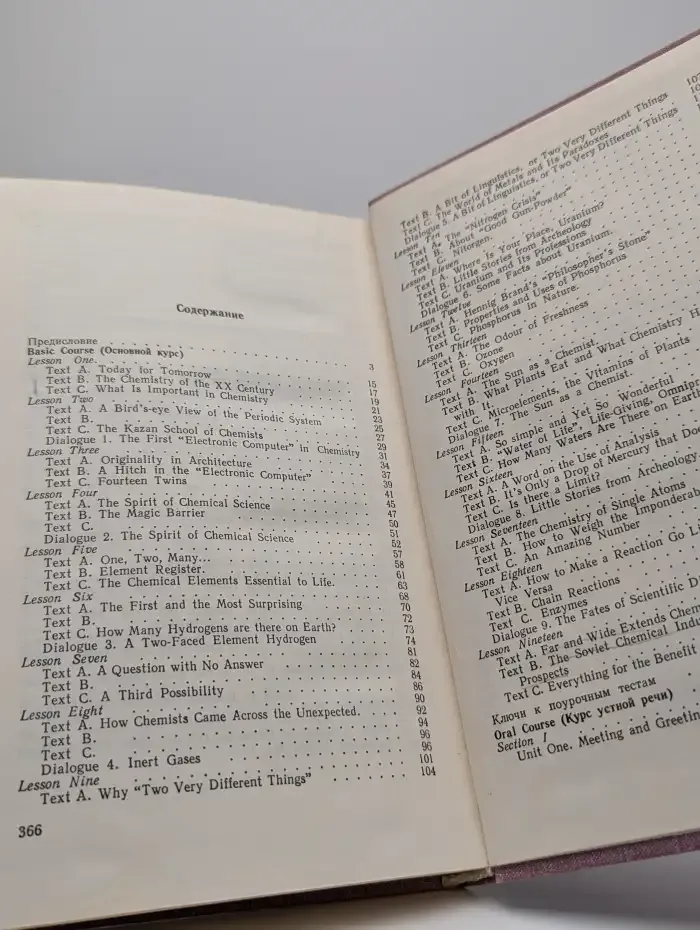 Содержание
Предисловие 3
Basic Course (Основной курс)
Lesson One 15
Text A. Today for Tomorrow 17
Text B. The Chemistry of the XX Century 19
Text C. What Is Important in Chemistry 21
Lesson Two 23
Text A. A Bird's-eye View of the Periodic System 25
Text B. 27
Text C. The Kazan School of Chemists 29
Dialogue 1. The First “Electronic Computer” in Chemistry 31
Lesson Three 34
Text A. Originality in Architecture 37
Text B. A Hitch in the “Electronic Computer” 39
Text C. Fourteen Twins 41
Lesson Four 45
Text A. The Spirit of Chemical Science 47
Text B. The Magic Barrier 50
Text C. 51
Dialogue 2. The Spirit of Chemical Science 52
Lesson Five 57
Text A. One, Two, Many... 58
Text B. Element Register. 61
Text C. The Chemical Elements Essential to Life. 63
Lesson Six 68
Text A. The First and the Most Surprising 70
Text B. 72
Text C. How Many Hydrogens are there on Earth? 73
Dialogue 3. A Two-Faced Element Hydrogen 74
Lesson Seven 81
Text A. A Question with No Answer 82
Text B. 84
Text C. A Third Possibility 86
Lesson Eight 90
Text A. How Chemists Came Across the Unexpected. 92
Text B. 94
Text C. 96
Dialogue 4. Inert Gases 96
Lesson Nine 101
Text A. Why “Two Very Different Things” 104
366
Text B. A Bit of Linguistics, or Two Very Different Things
Text C. The World of Metals and Its Paradoxes
Dialogue 5. A Bit of Linguistics, or Two Very Different Things
Lesson Ten
Text A. The “Nitrogen Crisis”
Text B. About “Good Gun-Powder”
Text C. Nitorgen.
Lesson Eleven
Text A. Where Is Your Place, Uranium?
Text B. Little Stories from Archeology
Text C. Uranium and Its Professions
Dialogue 6. Some Facts about Uranium.
Lesson Twelve
Text A. Hennig Brand's “Philosopher's Stone”
Text B. Properties and Uses of Phosphorus
Text C. Phosphorus in Nature.
Lesson Thirteen
Text A. The Odour of Freshness
Text B. Ozone
Text C. Oxygen
Lesson Fourteen
Text A. The Sun as a Chemist.
Text B. What Plants Eat and What Chemistry H
with It.
Text C. Microelements, the Vitamins of Plants
Dialogue 7. The Sun as a Chemist.
Lesson Fifteen
Text A. So simple and Yet So Wonderful
Text B. “Water of Life”, Life-Giving, Omnipr
Text C. How Many Waters Are There on Earth
Lesson Sixteen
Text A. A Word on the Use of Analysis
Text B. It's Only a Drop of Mercury that Doe
Text C. Is there a Limit?
Dialogue 8. Little Stories from Archeology.
Lesson Seventeen
Text A. The Chemistry of Single Atoms
Text B. How to Weigh the Imponderab
Text C. An Amazing Number
Lesson Eighteen
Text A. How to Make a Reaction Go Li
Vice Versa
Text B. Chain Reactions
Text C. Enzymes
Dialogue 9. The Fates of Scientific Di
Lesson Nineteen
Text A. Far and Wide Extends Chem
Text B. The Soviet Chemical Indu
Prospects
Text C. Everything for the Benefit
Ключи к поурочным тестам
Oral Course (Курс устной речи)
Section I
Unit One. Meeting and Greetin